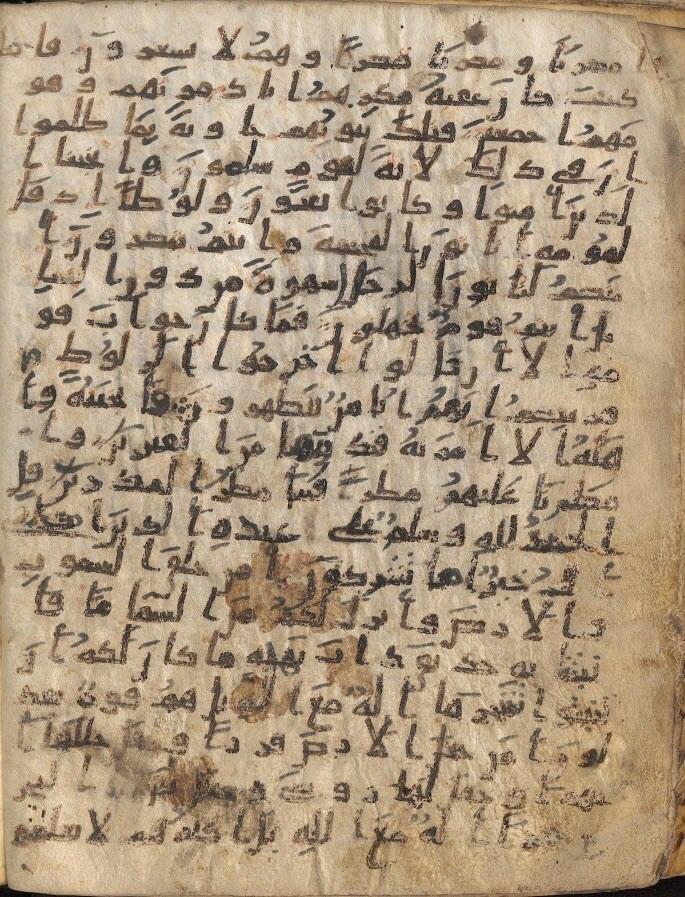 مكرا و مكرنا مكرا و هم لا يشعرون فا
كيف كان عقبة مكرهم انا دمرنهم و قو
مهم اجمعين فتلك بيوتهم خاوية بما ظلموا
ان في ذلك لاية لقوم يعلمون وانجينا ا
لذين امنوا و كانوا يتقون و لوطا اذ قال
لقومه اتاتون الفحشة وانتم تبصرون ا
ئنكم لتاتون الرجال شهوة من دون النسا
بل انتم قوم تجهلون فما كان جواب قو
مه الا ان قالوا اخرجوا ال لوط م
ن قريتكم انهم اناس يتطهرون فانجينه وا
هله الا امراته قدرنها من الغبرين وا
مطرنا عليهم مطرا فسا مطر المنذرين قل
الحمد لله وسلم على عبده الذين اصطفى
الله خير اما يشركون امن خلق السموت
والارض وانزل لكم من السما ما فا
نبتنا به حدئق ذات بهجة ما كان لكم ان
تنبتوا شجرها اله مع الله بل هم قوم يعد
لون امن جعل الارض قرارا و جعل خللها ا
نهرا و جعل لها روسى و جعل البحر
اله مع الله بل اكثرهم لا يعلمو